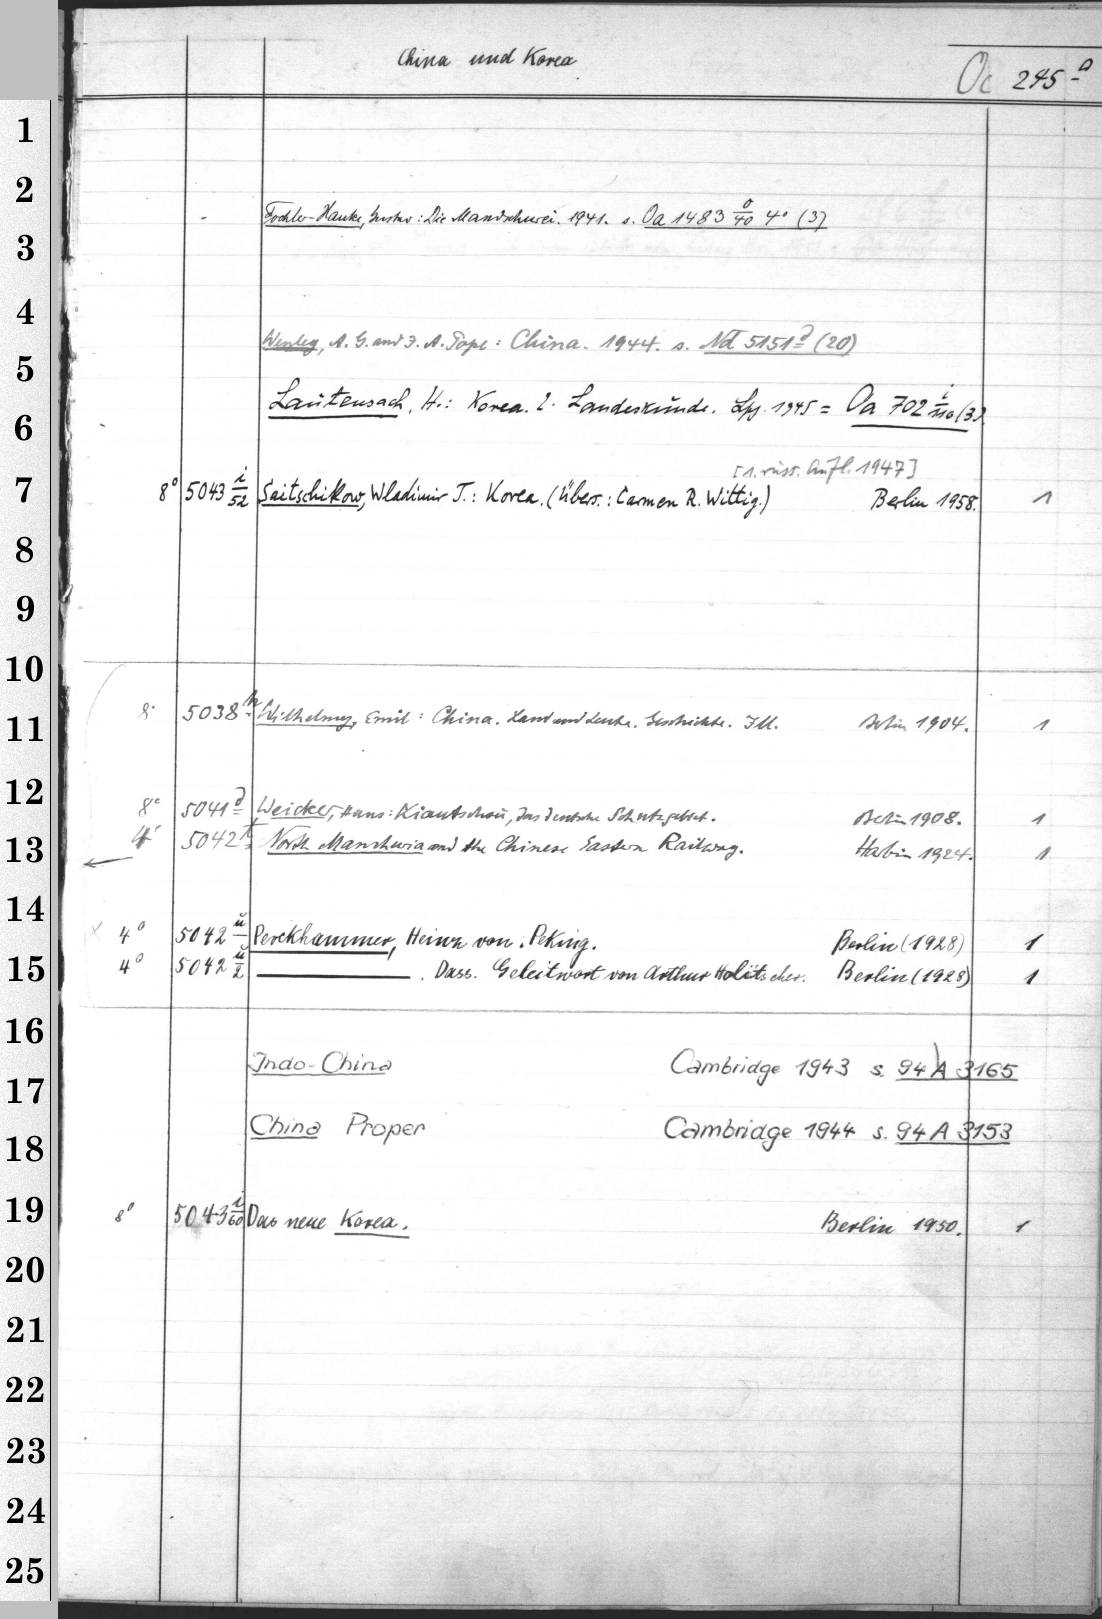 China und Korea
Oc 245 a
1
2
Fochler-Hauke, Gustav: Die Mandschurei. 1941. s. Oa 1483 o/40 4° (3)
3
4
Wenley, A. G. and J. A. Pope: China. 1944. s. Nd 5151 d (20)
5
Lautensach, H.: Korea. E. Landeskunde. Lpz. 1945 = Oa 702 i/110 (3)
6
[1. russ. Aufl. 1947]
7
8° 5043 i/52 Saitschikow, Wladimir T.: Korea. (Übers.: Carmen R. Wittig.) Berlin 1958. 1
8
9
10
8° 5038 Wilhelmy, Emil: China. Land und Leute. Geschichte. Ill. Berlin 1904. 1
11
12
8° 5041 d Weicker, Hans: Kiautschou, das deutsche Schutzgebiet. Berlin 1908. 1
4° 5042 North Manchuria and the Chinese Eastern Railway. Harbin 1924. 1
13
14
4° 5042 ü Perckhammer, Heinz von: Peking. Berlin (1928) 1
4° 5042 ü/2 ———. Dass. Geleitwort von Arthur Holitscher. Berlin (1928) 1
15
16
Indo-China Cambridge 1943 s. 94 A 3165
17
China Proper Cambridge 1944 s. 94 A 3153
18
19
8° 5043 i/60 Das neue Korea. Berlin 1950. 1
20
21
22
23
24
25